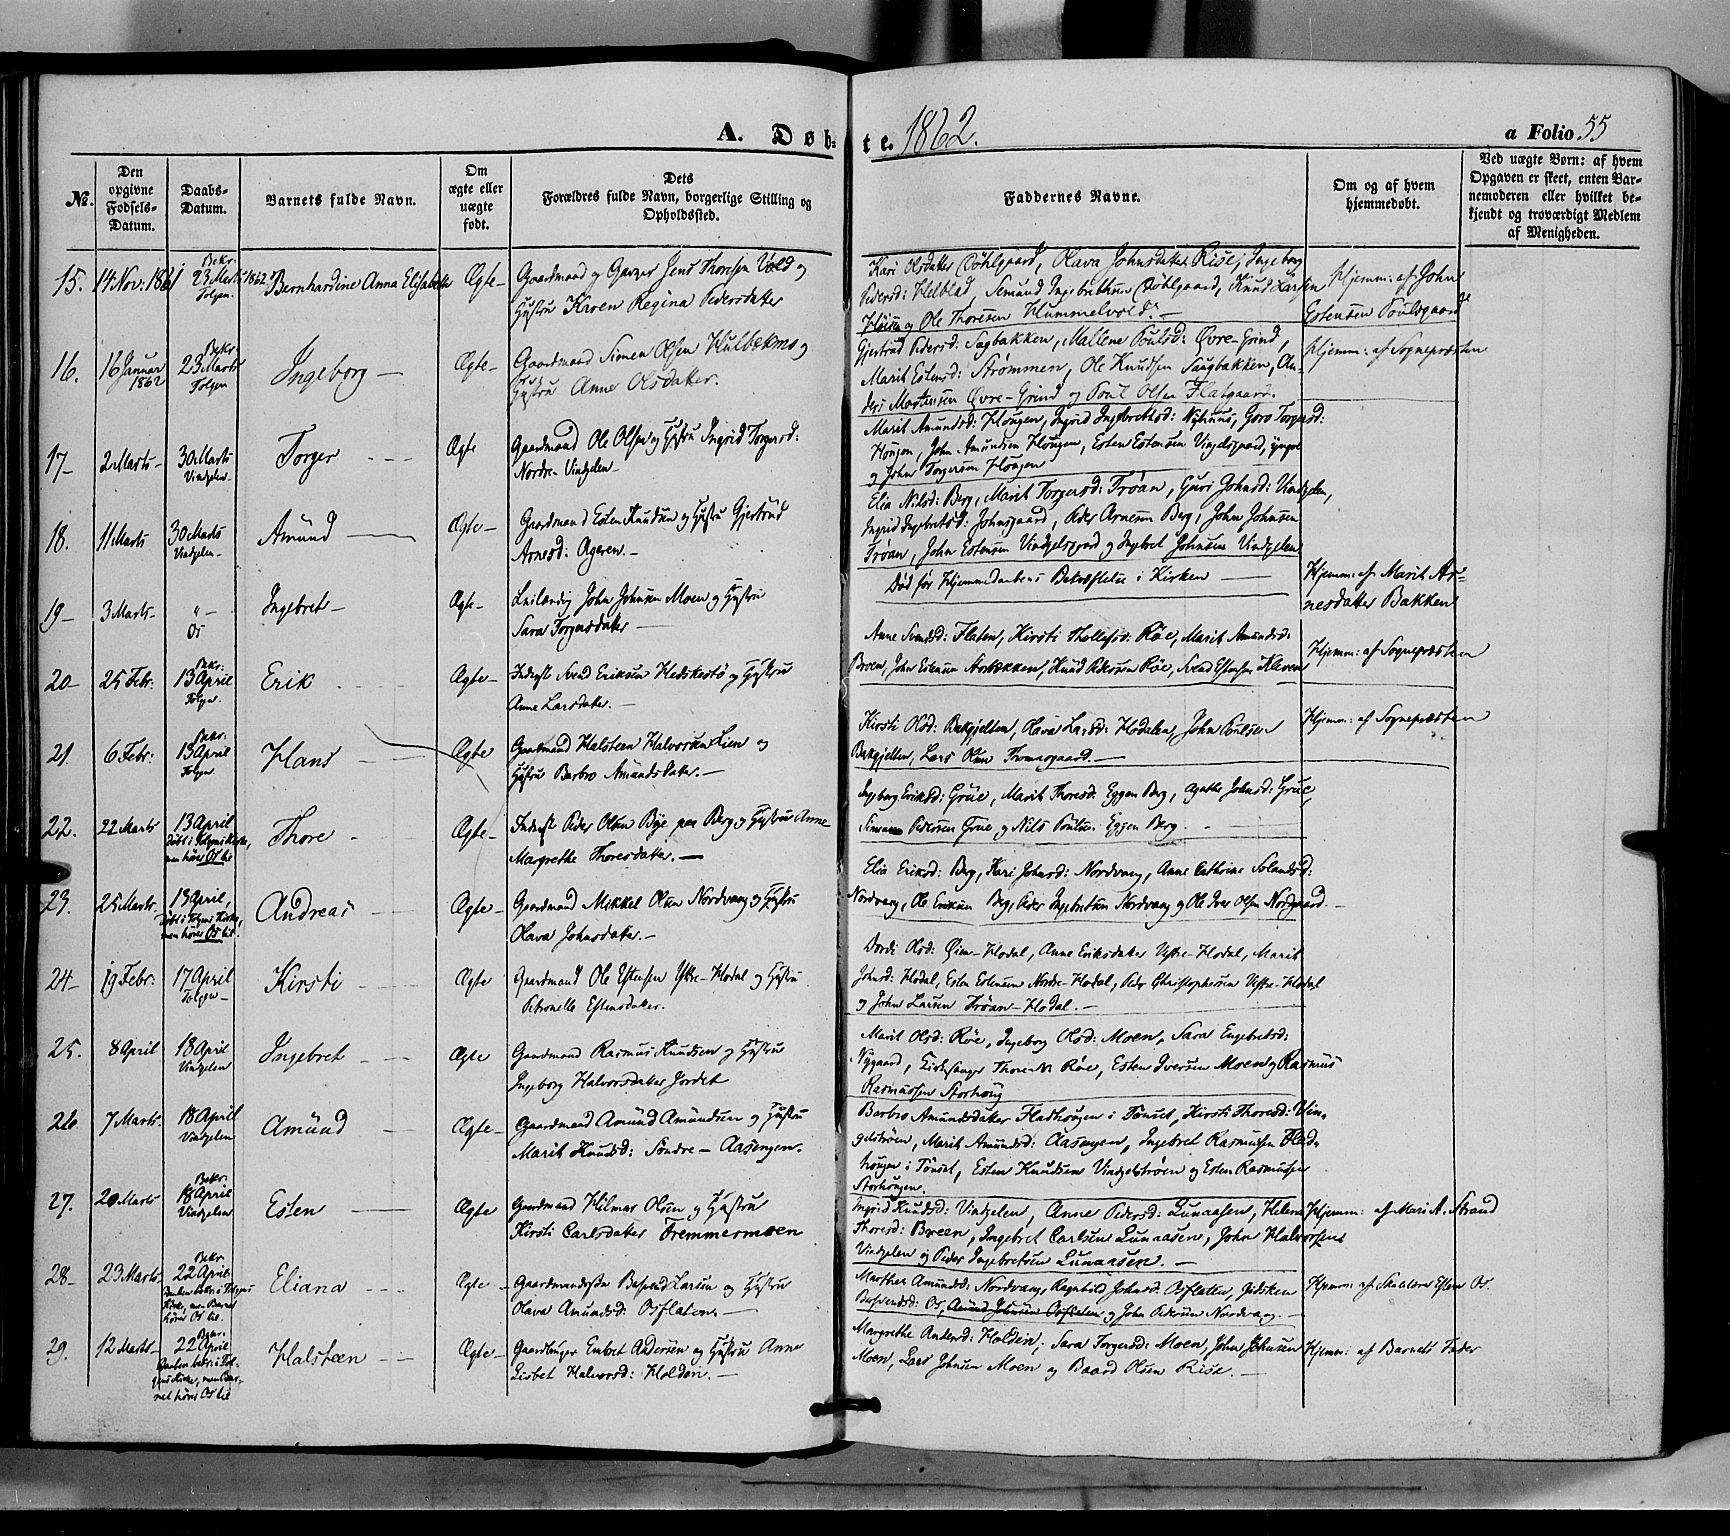 A. Døbte. 1862. a Folio 55
No.
Den opgivne Fødsels-Datum.
Daabs-Datum.
Barnets fulde Navn.
Om ægte eller uægte født.
Dets Forældres fulde Navn, borgerlige Stilling og Opholdssted.
Faddernes Navne.
Om og af hvem hjemmedøbt.
Ved uægte Børn: af hvem Opgaven er skeet, enten Barnemoderen eller hvilket bekjendt og troværdigt Medlem af Menigheden.
15. 14 Nov: 1861 Bekr. 23 Marts 1862 Tolgen. Bernhardine Anna Elisabeth Ægte-
Gaardmand og Garver Jens Thoresen Vold og
Hustru Karen Regina Pedersdatter
Kari Olsdatter Døhlgaard, Olava Johnsdatter Rise, Ingeborg
Pedersd: Hekblad, Semund Ingebrethsen Døhlgaard, Knud Larsen
og Ole Thoresen Hummelvold. -
Hjemm: af John
Estensen Poulsgaard
16. 16 Januar 1862 Bekr. 23 Marts Tolgen Ingeborg - Ægte-
Gaardmand Simen Olsen Hulbekmo og
Hustru Anne Olsdatter.
Gjertrud Pedersd: Sagbakken, Mallene Poulsd: Øvre-Grind,
Marit Estensd: Strømmen, Ole Knudsen Saugbakken, An-
ders Mortensen Øvre-Grind og Poul Olsen Flatgaard.
Hjemm: af Sognepræsten
17- 2 Marts- 30 Marts Vindgelen- Torger - - - Ægte
Gaardmand Ole Olsen og Hustru Ingrid Torgersd:
Nordre- Vindgelen-
Marit Amundsd: Hougen, Ingrid Ingebrethsd: Nyhuus, Goro Torgersd:
Hougen, John Amundsen Hougen, Esten Estensen Vingelsgaard, yngre
og John Torgersen Hougen
18. 11 Marts 30 Marts Vindgelen- Amund - Ægte-
Gaardmand Esten Knudsen og Hustru Gjertrud
Arnesd: Ageren. -
Elia Nilsd: Berg, Marit Torgersd: Trøan, Guri Johnsd: Vindgelen,
Ingrid Ingebretsd: Johnsgaard, Peder Arnesen Berg, John Johnsen
Trøan, John Estensen Vindgelsgaard og Ingebret Johnsen Vindgelen
19- 3 Marts- " - Os Ingebret- Ægte-
Leilænding John Johnsen Moen og Hustru
Sara Torgersdatter -
Død før Hjemmedaabens Bekræftelse i Kirken
Hjemm: af Marit Ar-
nesdatter Bakken
20- 25 Febr: Bekr: 13 April Tolgen Erik - - - Ægte-
Inderst Svend Eriksen Hedskestø og Hustru
Anne Larsdatter. -
Anne Svendsd: Flaten, Kirsti Thollefsd: Røe, Marit Amundsd:
Broen, John Estensen Storbækken, Knud Pedersen Røe, Svend Estensen Kleven
Hjemm: af Sognepræsten
21. 6 Febr: Bekr: 13 April Tolgen Hans - - Ægte
Gaardmand Halsteen Halvorsen Lien og
Hustru Barbro Amundsdatter. -
Kirsti Olsd: Bakgjelten, Olava Larsd: Hodalen, John Poulsen
Bakgjelten, Lars Olsen Thomasgaard. -
Hjemm: af Sognepræsten
22. 22 Marts 13 April Døbt i Tolgens Kirke, men hører Os til Thore - Ægte-
Inderst Peder Olsen Bye paa Berg og Hustru Anne
Margrethe Thoresdatter. -
Ingeborg Eriksd: Grue, Marit Thoresd: Eggen Berg, Agathe Johnsd: Grue,
Simen Pedersen Grue og Nils Poulsen Eggen Berg. -
23. 25 Marts. 13 April, Døbt i Tolgens Kirke, men hører Os til. Andreas - Ægte-
Gaardmand Mikkel Olsen Nordvang og Hustru
Olava Johnsdatter. -
Elia Eriksd: Berg, Kari Johnsd: Nordvang, Anne Cathrine
Nordvang, Ole Eriksen Berg, Peder Ingebretsen Nordvang og Ole Iver Olsen Nordgaard. -
24- 19 Febr: 17 April Tolgen- Kirsti - - Ægte
Gaardmand Ole Estensen Ystre-Hodal og Hustru
Petronelle Estensdatter.
Dordi Olsd: Øien-Hodal, Anne Eriksdatter Ystre-Hodal, Marit
Johnsd: Hodal, Esten Estensen Nordre-Hodal, Peder Christophersen Ystre-Hodal
og John Larsen Trøan-Hodal. -
25. 8 April 18 April Vindgelen Ingebret - - Ægte
Gaardmand Rasmus Knudsen og Hustru
Ingeborg Halvorsdatter Jordet
Marit Olsd: Røe, Ingeborg Olsd: Moen, Sara Engebretsd:
Nygaard, Kirkesanger Thore N. Røe, Esten Iversen Moen og Rasmus
Rasmussen Storhoug
26 7 Marts. 18 April Vindgelen Amund - Ægte-
Gaardmand Amund Amundsen og Hustru
Marit Knudsd: Søndre- Aasengen.
Barbro Amundsdatter Fladhougen i Tønset, Kirsti Thoresd: Vin-
gelstrøen, Marit Amundsd: Aasengen, Ingebret Rasmussen Flad-
hougen i Tønset, Esten Knudsen Vindgelstrøen og Esten Rasmussen
Storhougen.
27. 20 Marts Bekr. 18 April Vindgelen Esten - Ægte
Gaardmand Hilmar Olsen og Hustru
Kirsti Carlsdatter Fremmermoen
Ingrid Knudsd: Vindgelen, Anne Pedersd: Lunaasen, Helena
Thoresd: Breen, Ingebret Carlsen Lunaasen, John Halvorsen
Vindgelen og Peder Ingebretsen Lunaasen. -
Hjemm: af Mari A. Strand
28- 23 Marts- Bekr 22 April Daaben bekr. i Tolgens Kirke, men Barnet hører Os til. Eliana - - Ægte-
Gaardmandssøn Bersvend Larsen og Hustru
Olava Amundsd: Osflaten. -
Marthe Amundsd: Nordvang, Ragnhild Johnsd: Osflaten, Gjertrud
Bersvendsd: Os, Amund Johnsen Osflaten og John Pedersen Nordvang. -
Hjemm: af Skolelærer Esten Os.
29. 12 Marts- Bekr. 22 April Daaben bekr. i Tolgens Kirke, men Barnet hører Os til Halsteen - - Ægte-
Gaardbruger Embret Andersen og Hustru Anne
Lisbet Halvorsd: Holden. -
Margrethe Andersd: Holden, Sara Torgersd: Moen, John Johnsen
Moen, Lars Johnsen Moen og Baard Olsen Rise. -
Hjemm: af Barnets Fader